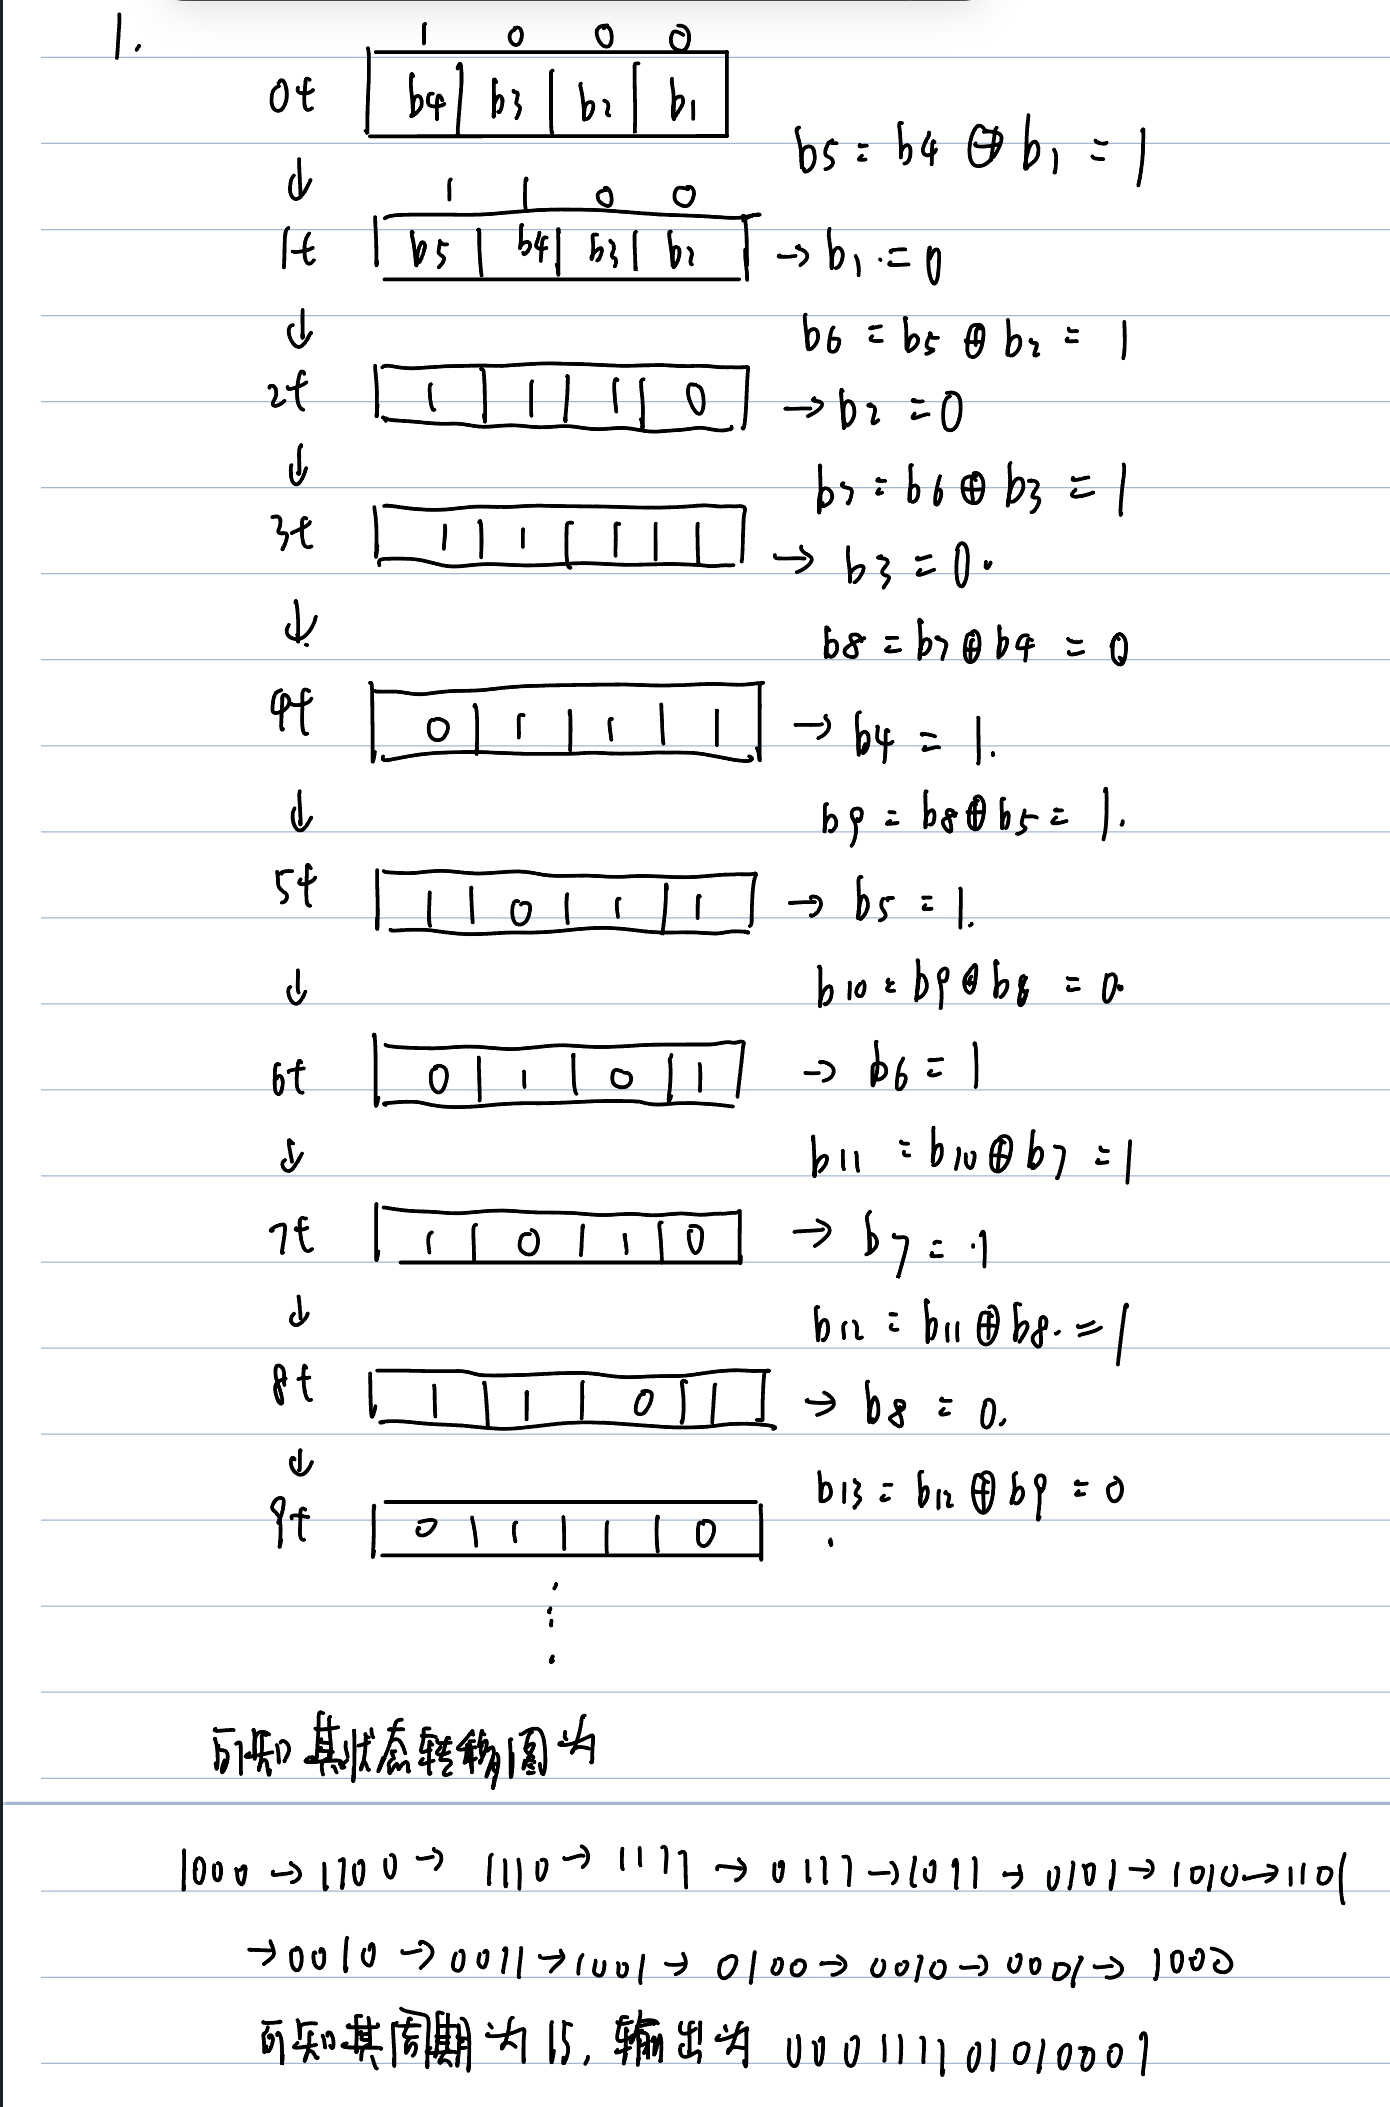 1.
1 0 0 0
0t b4 b3 b2 b1
b5 = b4 ⊕ b1 = 1
1 1 0 0
1t b5 b4 b3 b2 → b1 = 0
b6 = b5 ⊕ b2 = 1
2t 1 1 1 0 → b2 = 0
b7 = b6 ⊕ b3 = 1
3t 1 1 1 1 → b3 = 0.
b8 = b7 ⊕ b4 = 0
4t 0 1 1 1 → b4 = 1.
b9 = b8 ⊕ b5 = 1.
5t 1 0 1 1 → b5 = 1.
b10 = b9 ⊕ b6 = 0.
6t 0 1 0 1 → b6 = 1
b11 = b10 ⊕ b7 = 1
7t 1 0 1 0 → b7 = 1
b12 = b11 ⊕ b8. = 1
8t 1 1 0 1 → b8 = 0.
b13 = b12 ⊕ b9 = 0
9t 0 1 1 0
⋮
可知其状态转移图为
1000 → 1100 → 1110 → 1111 → 0111 → 1011 → 0101 → 1010 → 1101
→ 0010 → 0011 → 1001 → 0100 → 0010 → 0001 → 1000
可知其周期为15, 输出为 000111101010001